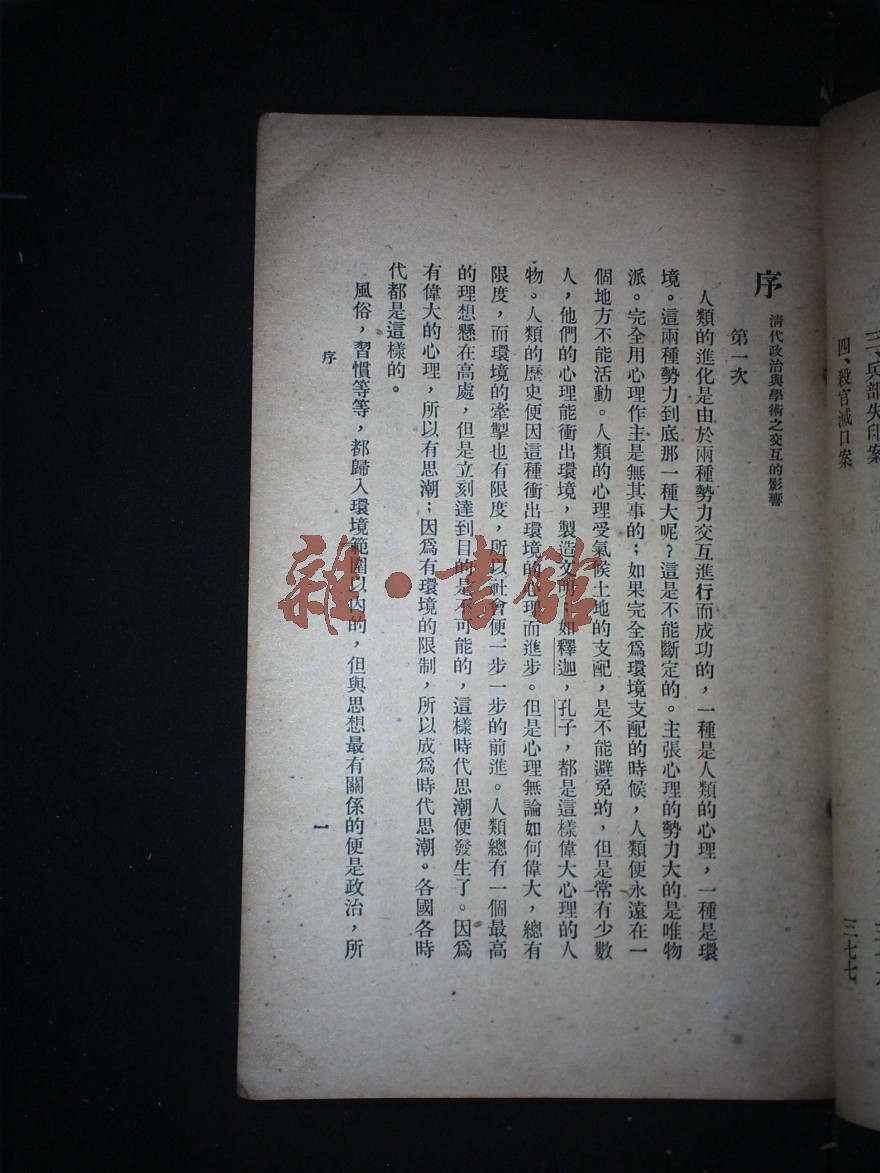 三、兵部失印案
四、殺官滅口案
三七七
序 清代政治與學術之交互的影響
第一次
人類的進化是由於兩種勢力交互進行而成功的，一種是人類的心理，一種是環
境。這兩種勢力到底那一種大呢？這是不能斷定的。主張心理的勢力大的是唯物
派。完全用心理作主是無其事的；如果完全爲環境支配的時候，人類便永遠在一
個地方不能活動。人類的心理受氣候土地的支配，是不能避免的，但是常有少數
人，他們的心理能衝出環境，製造文明，如釋迦，孔子，都是這樣偉大心理的人
物。人類的歷史便因這種衝出環境的心理而進步。但是心理無論如何偉大，總有
限度，而環境的牽掣也有限度，所以社會便一步一步的前進。人類總有一個最高
的理想懸在高處，但是立刻達到目的是不可能的，這樣時代思潮便發生了。因爲
有偉大的心理，所以有思潮；因爲有環境的限制，所以成爲時代思潮。各國各時
代都是這樣的。
風俗，習慣等等，都歸入環境範圍以內的，但與思想最有關係的便是政治，所
序
一
雜·書館